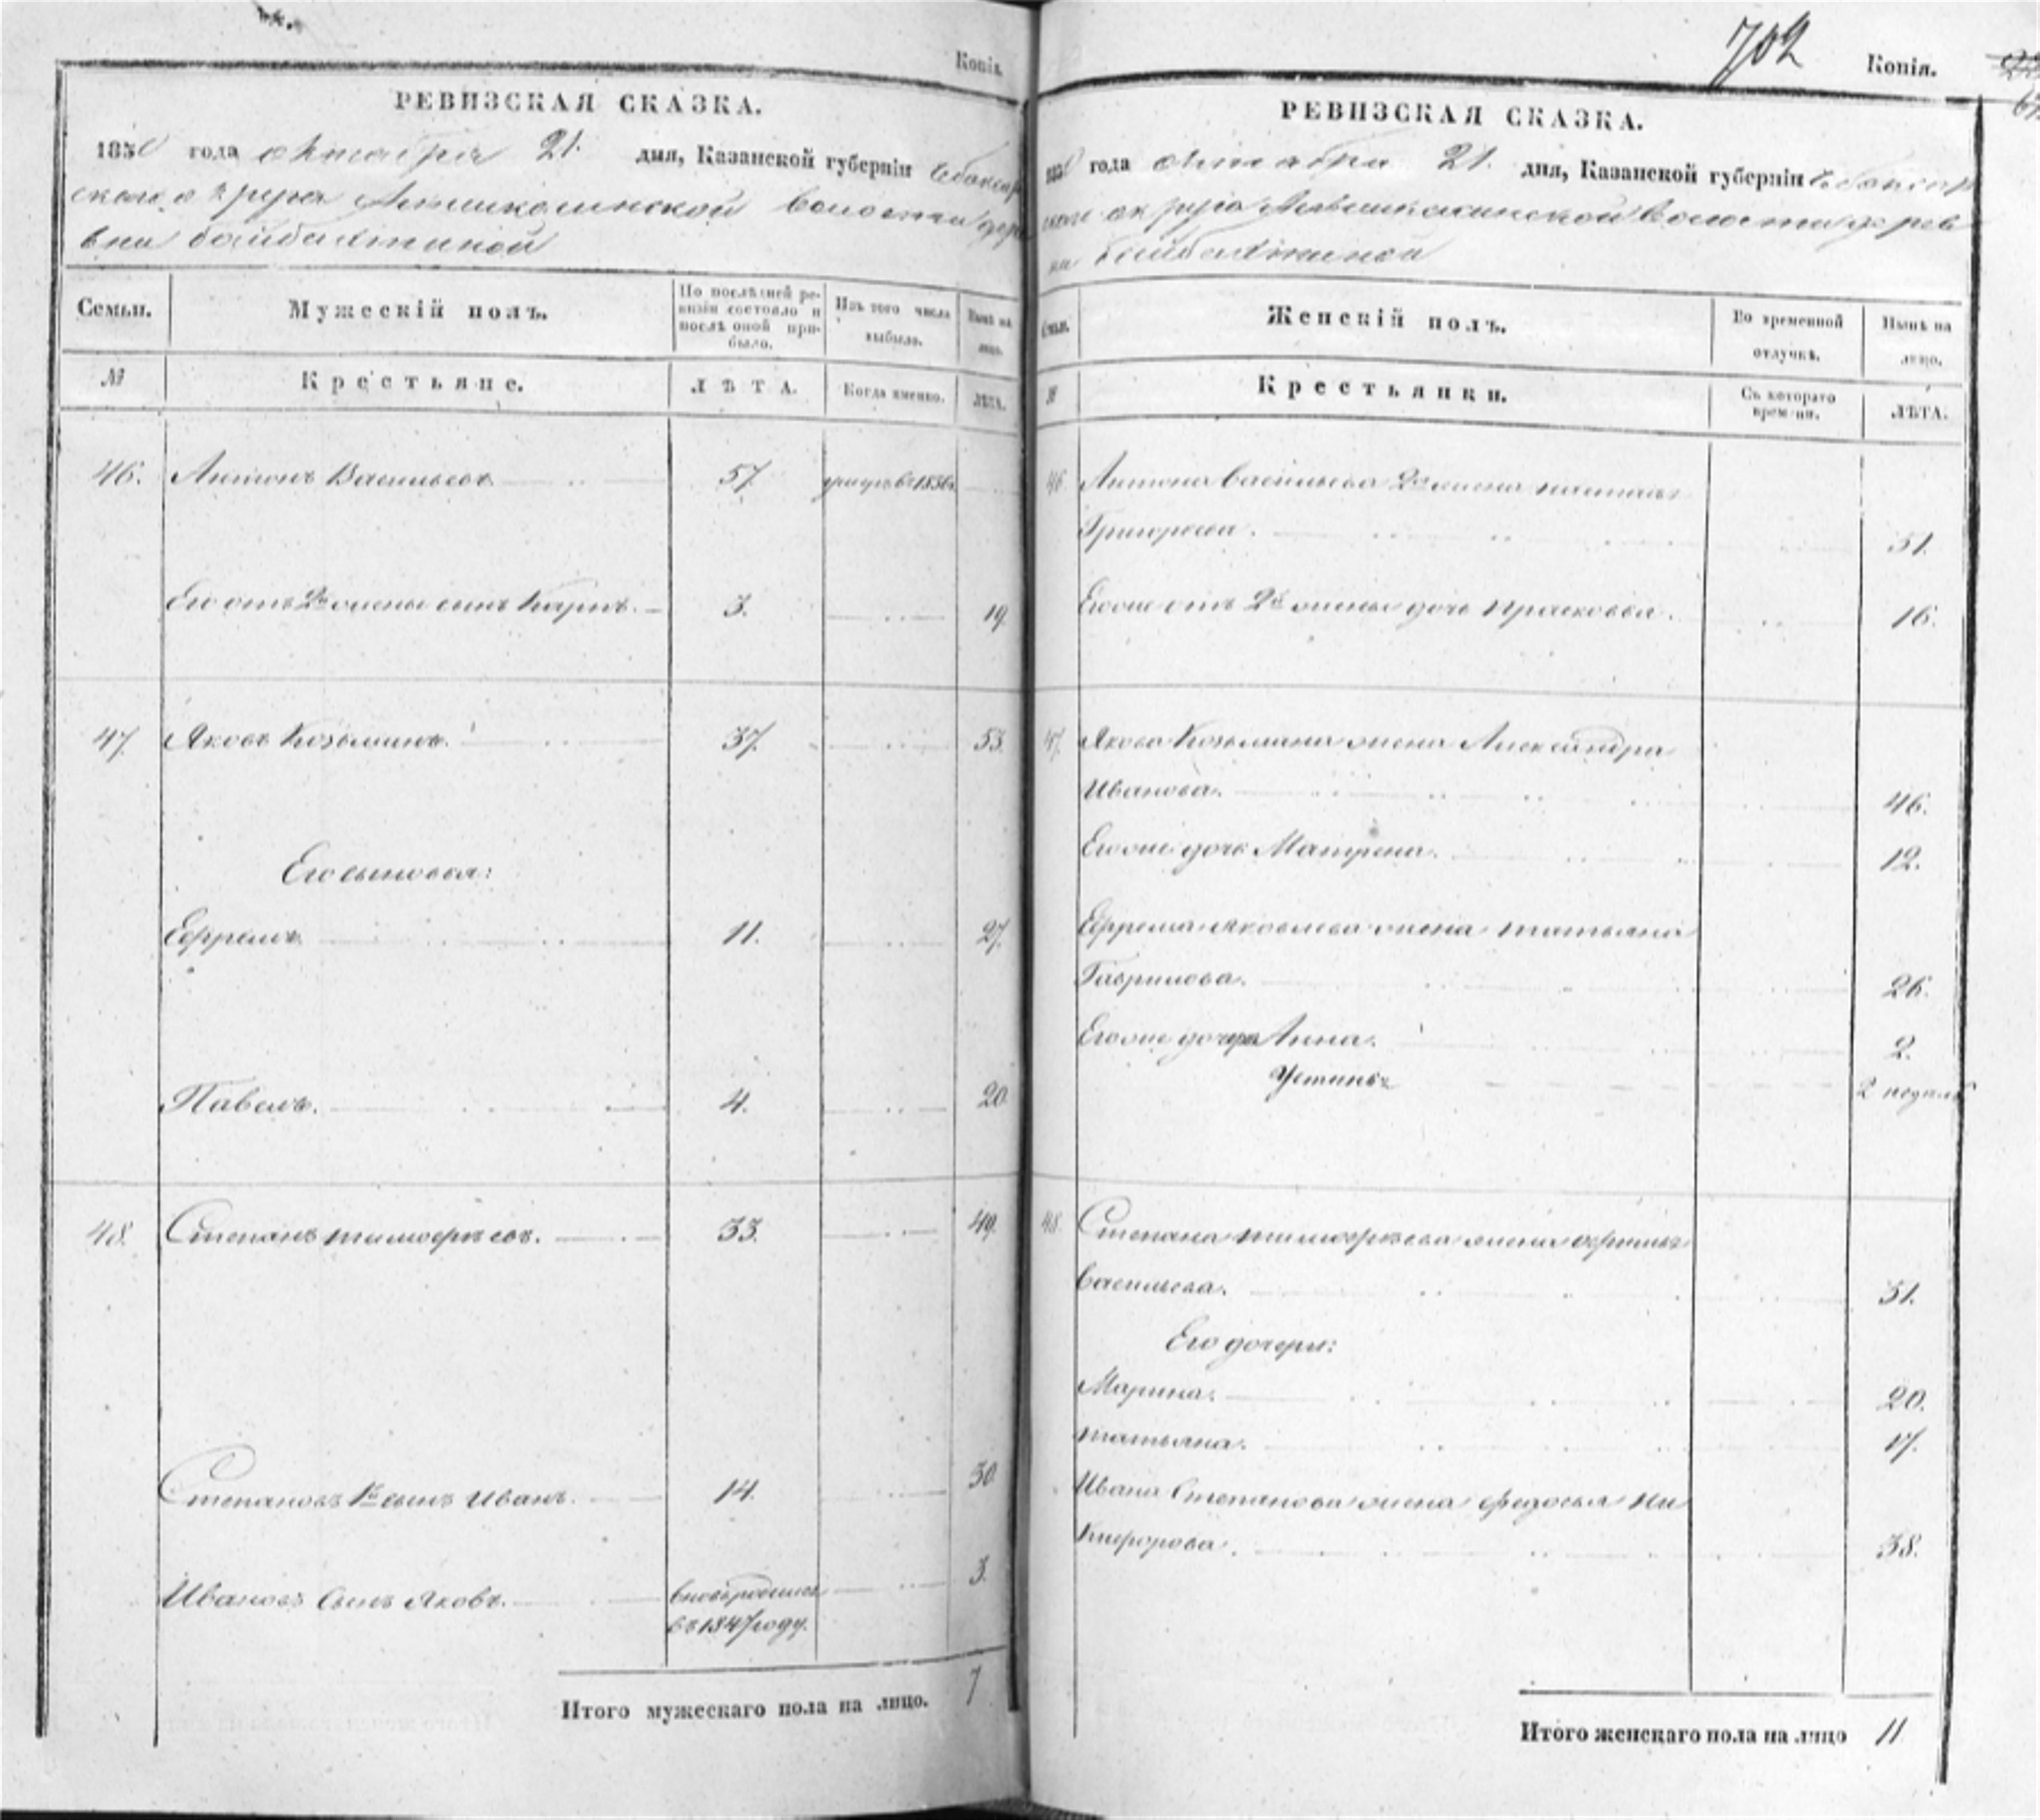 Копія.
РЕВИЗСКАЯ СКАЗКА.
1850 года октября 21. дня, Казанской губерніи Чебоксар
скаго округа волости дере
вни Байбахтиной
Семьи. Мужескій полъ. По послѣдней ре-
визіи состояло и
послѣ оной при-
было. Изъ того числа
выбыло. Нынѣ на
лицо.
№ Крестьяне. ЛѢТА. Когда именно. ЛѢТА.
46. Антонъ Васильевъ 57. 1836
Его отъ 2й жены сынъ Карпъ. 3. 19.
47. Яковъ Козьминъ. 37. 53.
Его сыновья:
Ефремъ. 11. 27.
Павелъ. 4. 20
48. Степанъ Тимофѣевъ. 33. 49.
Степановъ 1й сынъ Иванъ. 14. 30.
Ивановъ сынъ Яковъ. вновь родился 3.
въ 1847 году.
Итого мужескаго пола на лицо. 7
702 Копія.
РЕВИЗСКАЯ СКАЗКА.
1850 года октября 21. дня, Казанской губерніи Чебоксар
скаго округа волости дерев
ни Байбахтиной
Семьи. Женскій полъ. Во временной
отлучкѣ. Нынѣ на
лицо.
№ Крестьянки. Съ котораго
времени. ЛѢТА.
46. Антона Васильева 2я жена Наталья
Григорьева. 51.
Его же отъ 2й жены дочь Прасковья. 16.
47. Якова Козьмина жена Александра
Иванова. 46.
Его же дочь Матрена. 12.
Ефрема Яковлева жена Татьяна
Гаврилова. 26.
Его же дочери Анна. 2.
Устинья 2 недѣль
48. Степана Тимофѣева жена
Васильева. 51.
Его дочери:
Марина. 20.
Татьяна. 17.
Ивана Степанова жена Федосья Ни
кифорова. 38.
Итого женскаго пола на лицо 11